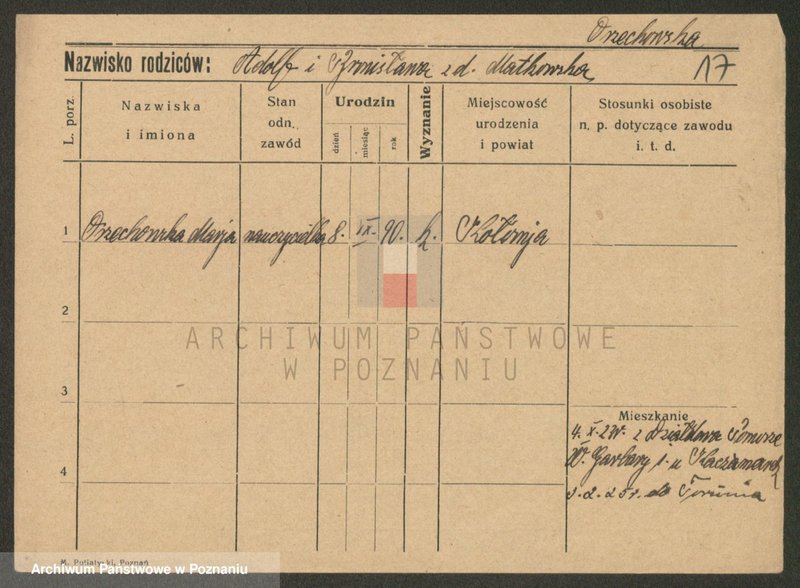 Orzechowska
Nazwisko rodziców: Adolf i Bronisława z d. Małkowska 17
L. porz.
Nazwiska
i imiona
Stan
odn.
zawód
Urodzin
dzień
miesiąc
rok
Wyznanie
Miejscowość
urodzenia
i powiat
Stosunki osobiste
n. p. dotyczące zawodu
i. t. d.
1 Orzechowska Marja nauczycielka 8. IX. 90. k. Kołomja
2
ARCHIWUM PAŃSTWOWE
W POZNANIU
3
Mieszkanie
4. X. 24r. z Działdowa Pomorze
W. Garbary 1. u
4
3. 2. 25 r. do Torunia
Poznań
Archiwum Państwowe w Poznaniu